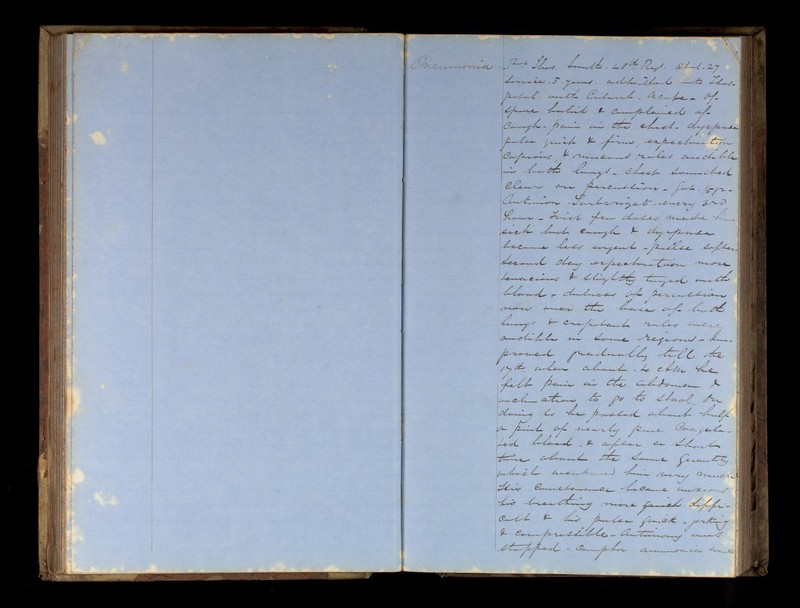 Pneumonia
Thos Smith 48th Regt. Aetat. 27
Service 5 years. admitted into Hos-
pital with Catarrh. Acute - Of
spare habit & complained of
Cough. pain in the chest. dyspnoea
pulse quick & firm, expectoration
Copious, & mucous rales audible
in both lungs - Chest sounded
Clear on percussion - 
Antimon Tartarizat. every 3rd
hour - First few doses made him
sick but cough & dyspnoea
became less urgent - pulse softer
second day expectoration more
tenacious & slightly tinged with
blood - dulness of percussion
now over the base of both
lungs & crepitant rales were
audible in some regions - Im-
proved gradually till the
17th when about 4 AM he
felt pain in the abdomen &
inclination to go to stool. On
doing so he passed about half
a pint of nearly pure Coagula-
ted blood. & after a short
time about the same quantity
which weakened him very much
His Countenance became anxious
his breathing more quick diffi-
cult & his pulse quick - jerking
& compressible. Antimony was
stopped - Camphor ammonia and